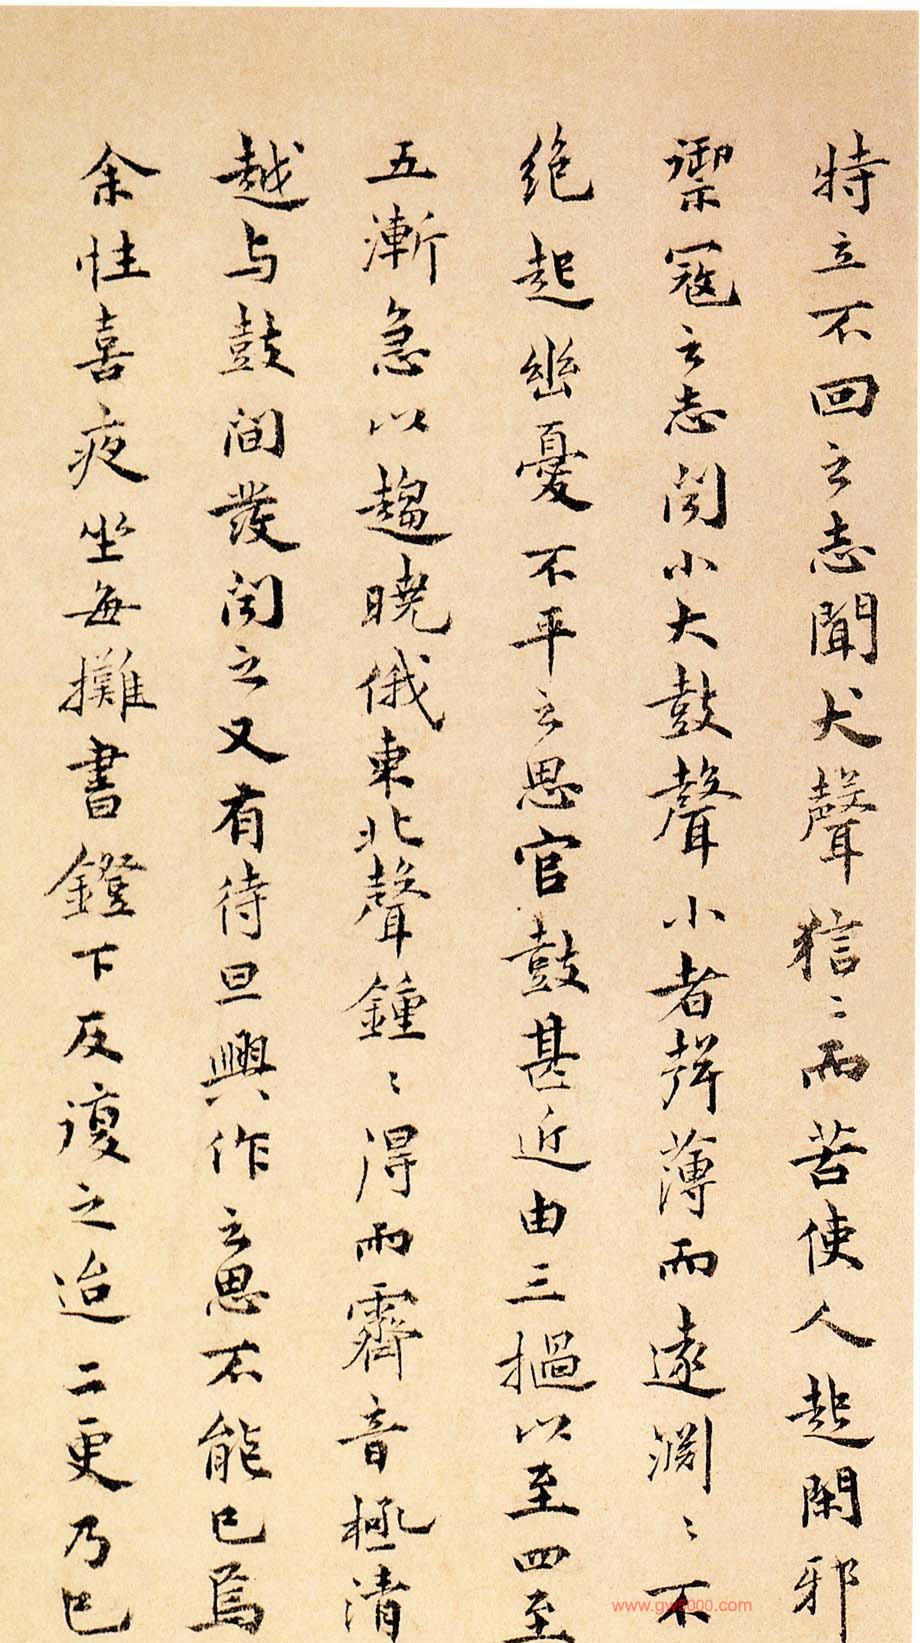 特立不回之志聞犬聲狺〻而苦使人起閑邪
禦寇之志聞小大鼓聲小者聲薄而遠淵〻不
絶起幽憂不平之思官鼓甚近由三撾以至四至
五漸急以趨曉俄東北聲鍾〻得雨霽音極清
越与鼓間發聞之又有待旦興作之思不能已焉
余性喜夜坐每攤書鐙下反復之迨二更乃已
www.gw5000.com